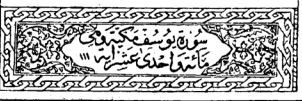 سورة يوسف مكية وهي
مائة واحدى عشر آية ١١١